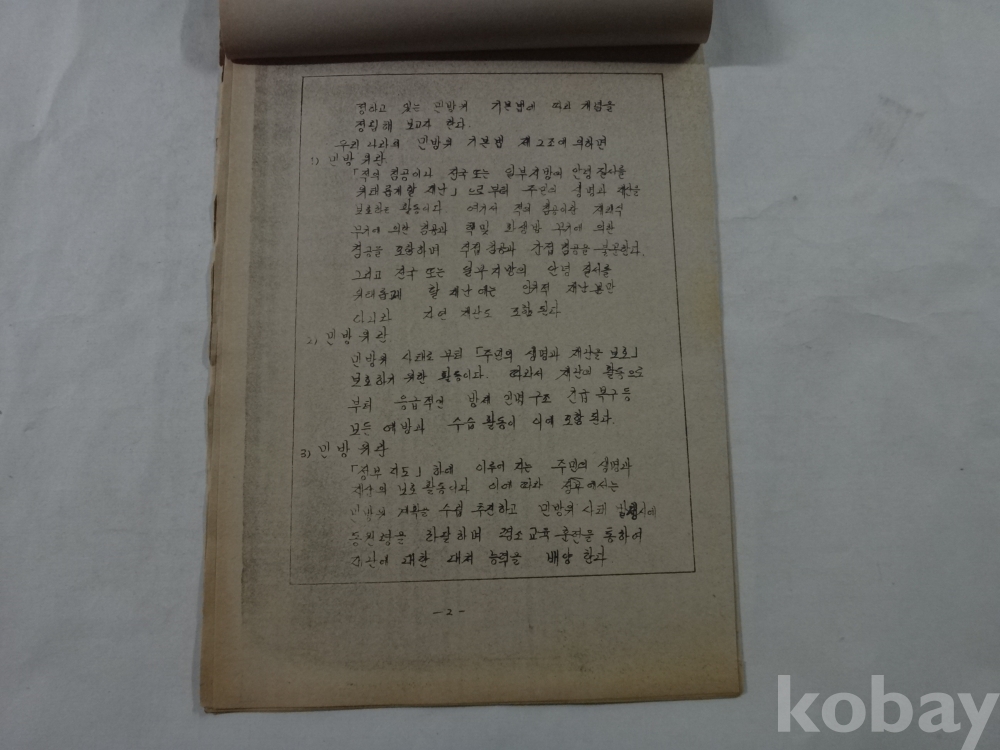 정하고 있는 민방위 기본법에 따라 개념을
정립해 보고자 한다.
우리 나라의 민방위 기본법 제2조에 의하면
1) 민방위란
「적의 침공이나 전국 또는 일부지방의 안녕 질서를
위태롭게 할 재난」으로부터 주민의 생명과 재산을
보호하는 활동이다 여기서 적의 침공이란 재래식
무기에 의한 침공과 핵및 화생방 무기에 의한
침공을 포함하며 직접 침공과 간접 침공을 불문한다.
그리고 전국 또는 일부 지방의 안녕 질서를
위태롭게 할 재난에는 인위적 재난뿐만
아니라 자연 재난도 포함 된다
2) 민방위란
민방위 사태로 부터 「주민의 생명과 재산을 보호」
보호하기 위한 활동이다. 따라서 재난의 활동으로
부터 응급적인 방재 인명구조 긴급 복구등
모든 예방과 수습 활동이 이에 포함 된다.
3) 민방위란
「정부 지도」하에 이루어 지는 주민의 생명과
재산의 보호 활동이다 이에 따라 정부에서는
민방위 계획을 수립 추진하고 민방위 사태 발생시에
동원령을 하달하며 교육 훈련을 통하여
재난에 대한 대처 능력을 배양 한다
-2-
kobay